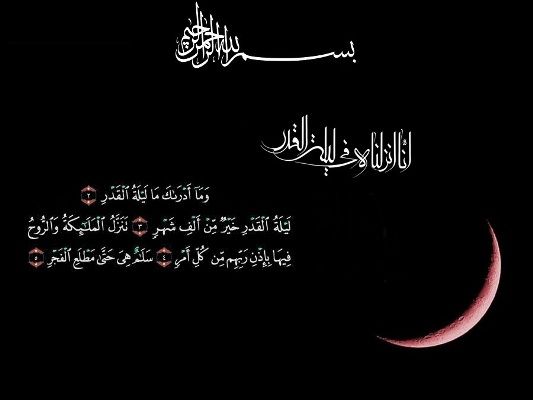 بسم الله الرحمن الرحيم
انا انزلناه في ليلة القدر
وَمَآ أَدْرَىٰكَ مَا لَيْلَةُ ٱلْقَدْرِ ٢
لَيْلَةُ ٱلْقَدْرِ خَيْرٌ مِّنْ أَلْفِ شَهْرٍ ٣ تَنَزَّلُ ٱلْمَلَـٰٓئِكَةُ وَٱلرُّوحُ
فِيهَا بِإِذْنِ رَبِّهِم مِّن كُلِّ أَمْرٍ ٤ سَلَـٰمٌ هِىَ حَتَّىٰ مَطْلَعِ ٱلْفَجْرِ ٥